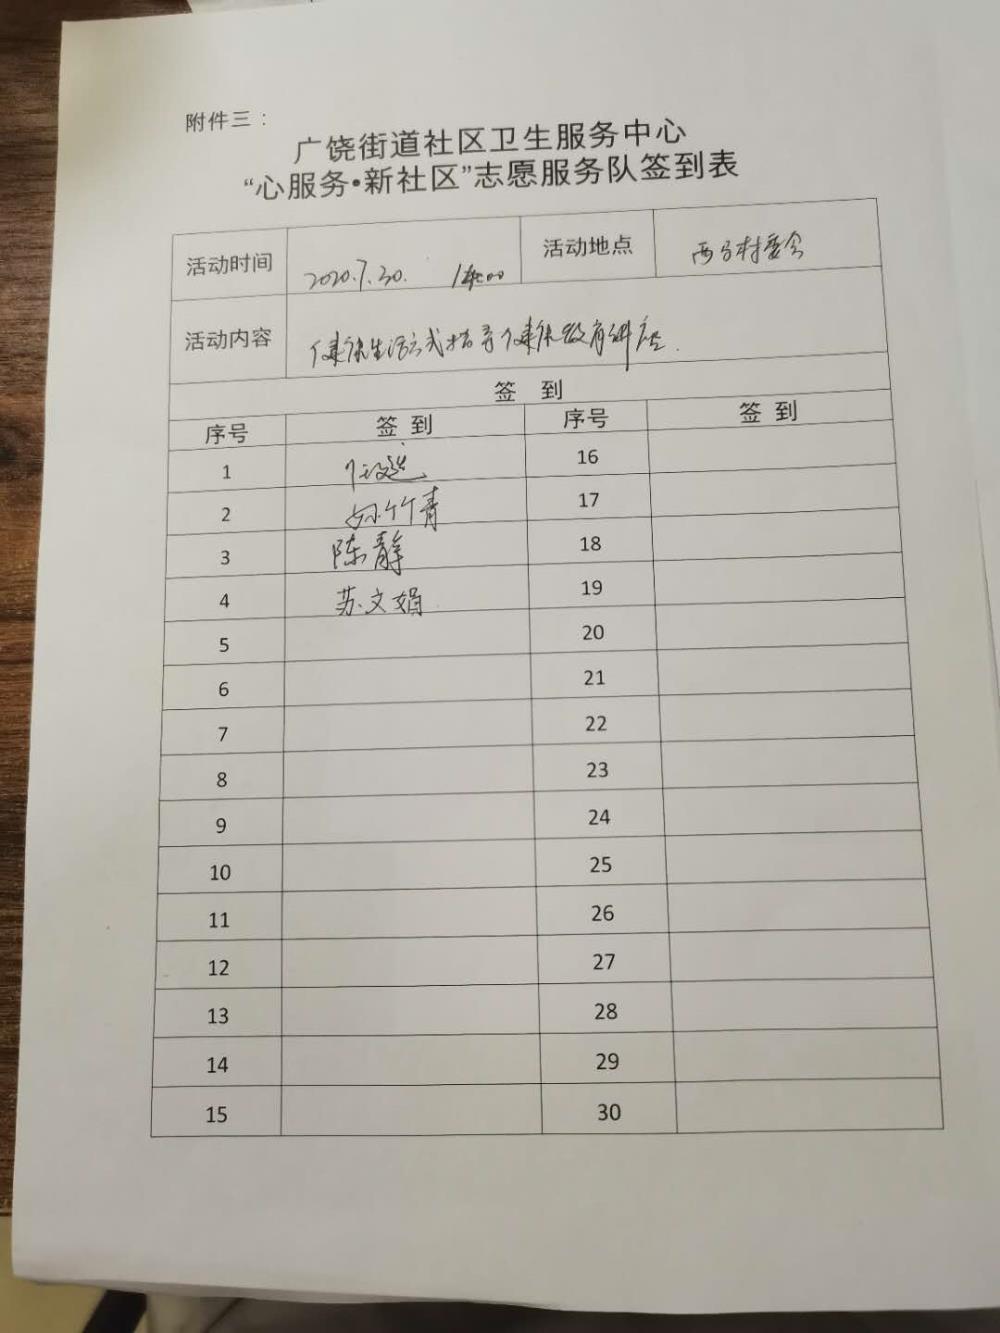 附件三：
广饶街道社区卫生服务中心
“心服务•新社区”志愿服务队签到表
活动时间 2020.7.30. 14:00 活动地点 村委会
活动内容 健康生活方式指导健康教育讲座.
签 到
序号 签 到 序号 签 到
1 16
2 孙竹青 17
3 陈静 18
4 苏文娟 19
5 20
6 21
7 22
8 23
9 24
10 25
11 26
12 27
13 28
14 29
15 30